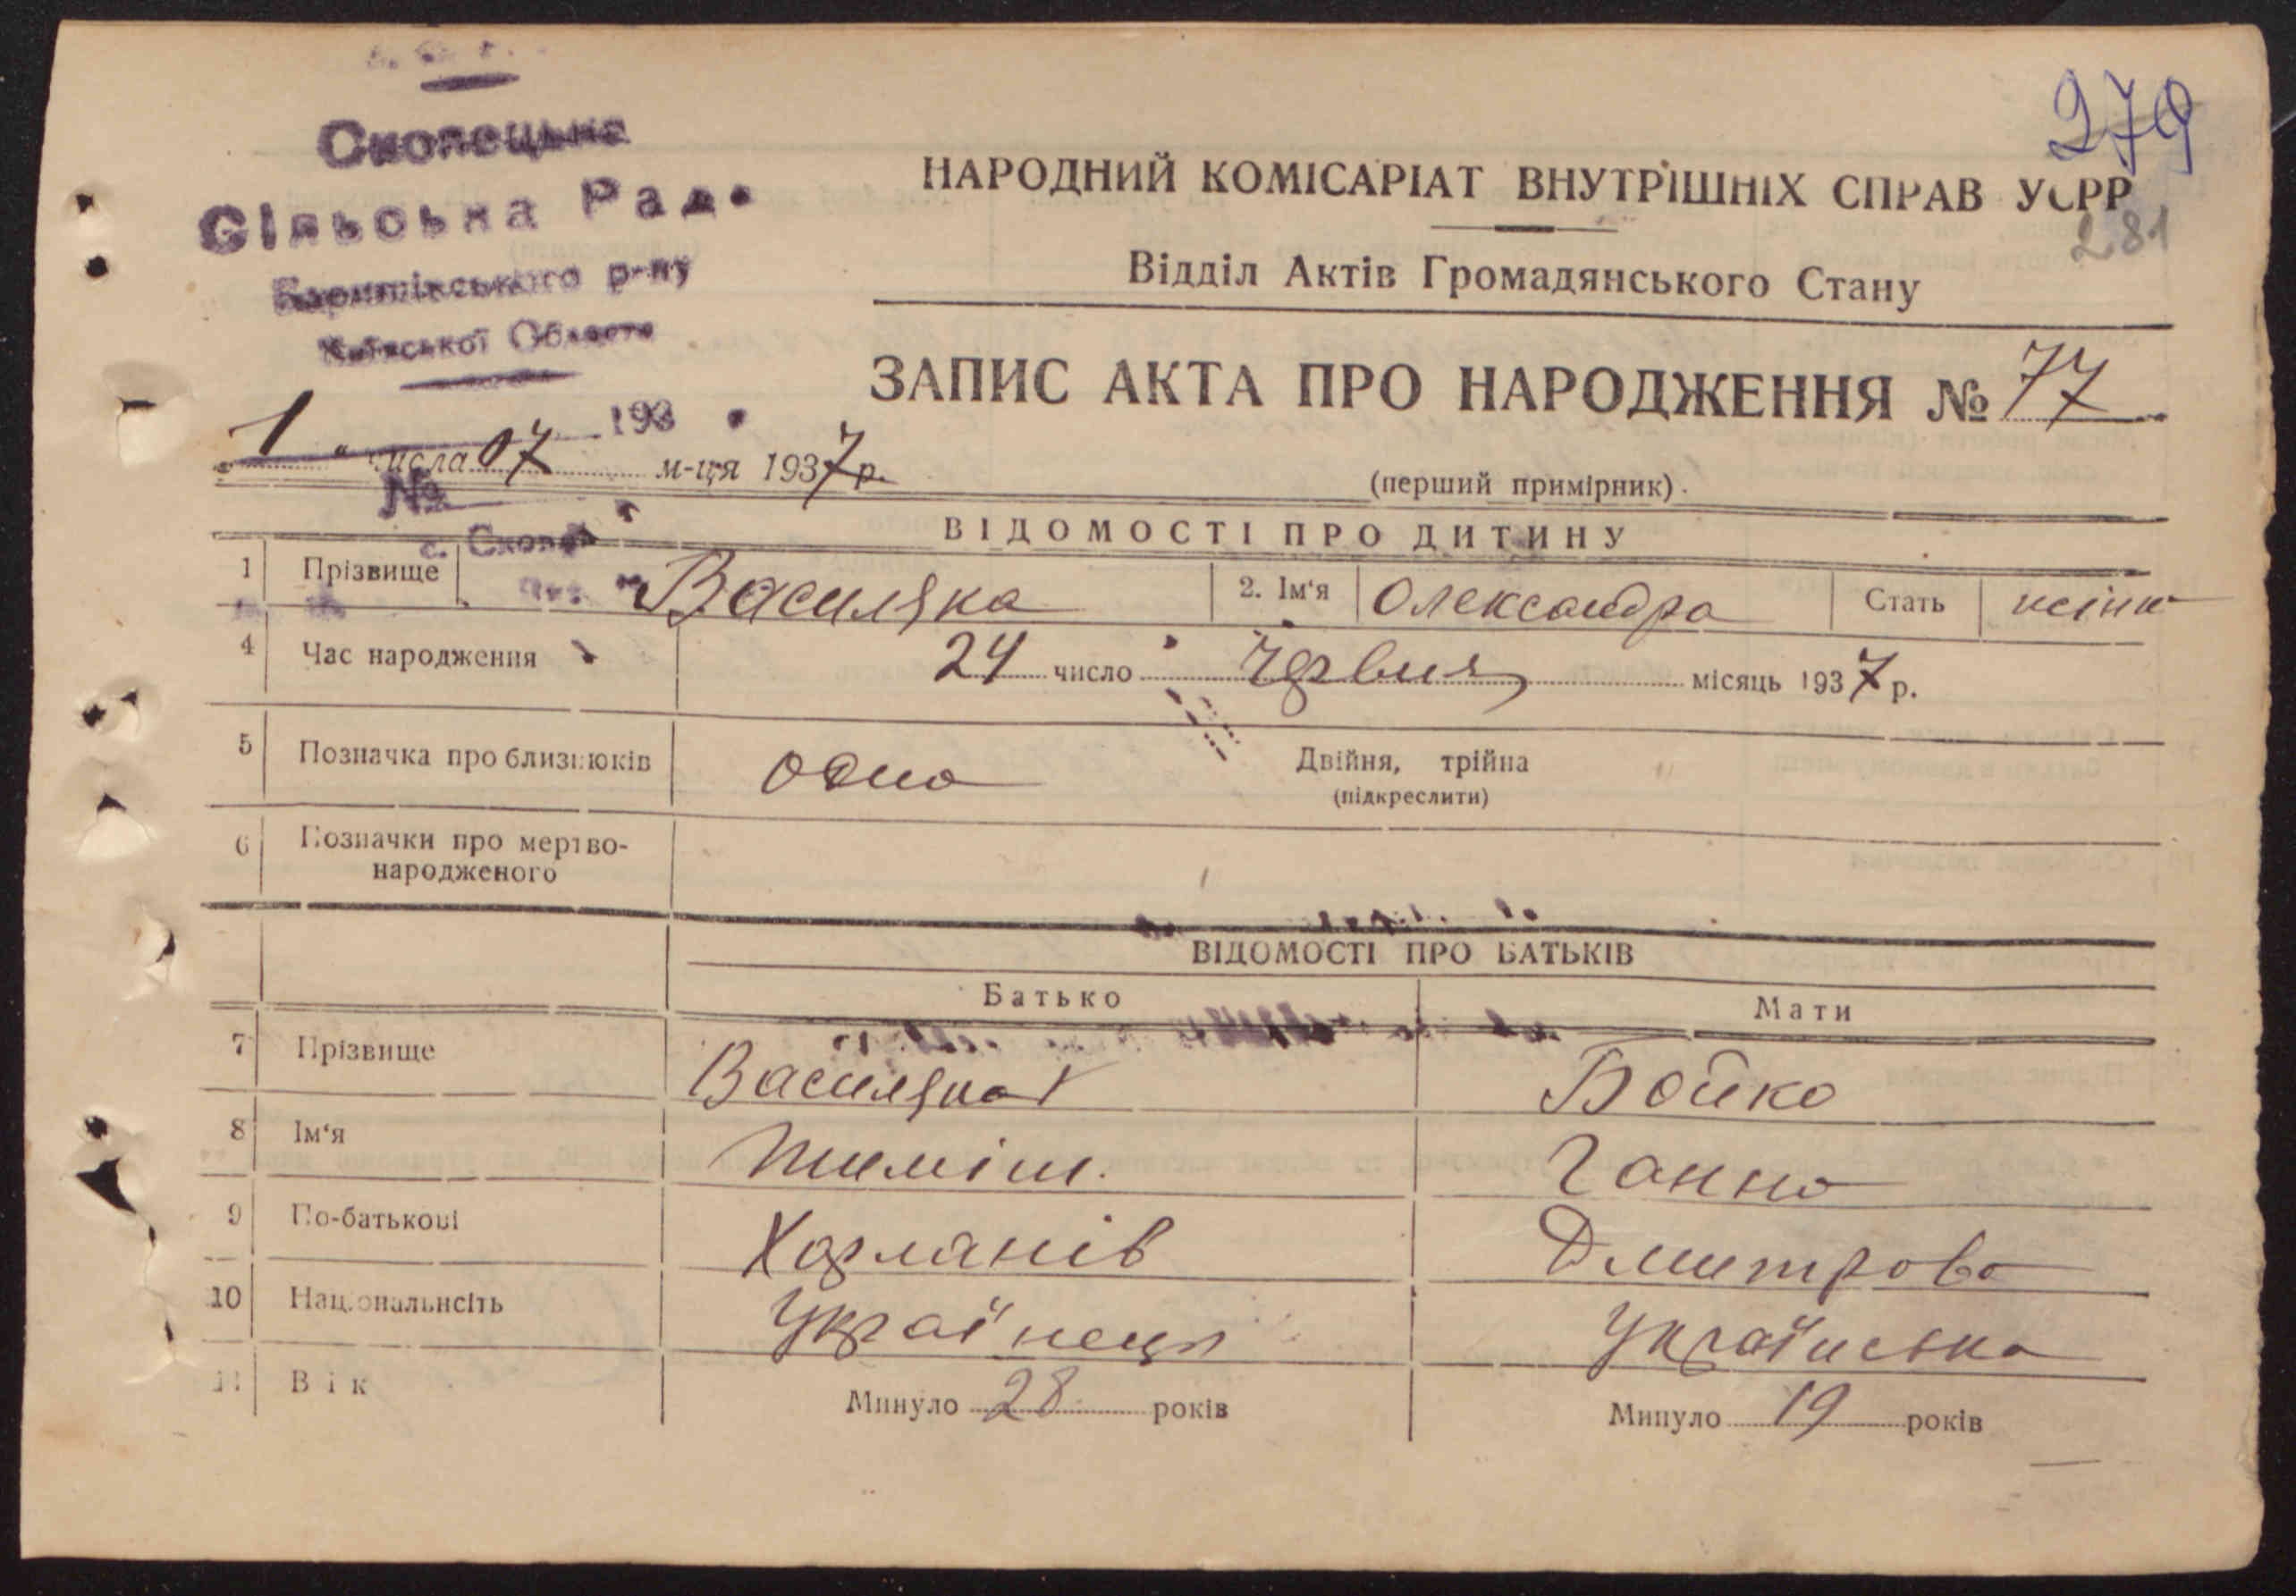 279
281
Скопецька
Сільська Рада
Баришівського р-ну
Київської Области
193
№
с. Скопці
НАРОДНИЙ КОМІСАРІАТ ВНУТРІШНІХ СПРАВ УСРР
Відділ Актів Громадянського Стану
ЗАПИС АКТА ПРО НАРОДЖЕННЯ № 77
1 числа 07 м-ця 1937 р.
(перший примірник)
ВІДОМОСТІ ПРО ДИТИНУ
1 Прізвище Василяка 2. Ім'я Олександра Стать жіно
4 Час народження 24 число Червня місяць 1937 р.
5 Позначка про близнюків одна Двійня, трійна
(підкреслити)
6 Позначки про мертво-
народженого
ВІДОМОСТІ ПРО БАТЬКІВ
Батько Мати
7 Прізвище Василяка Бойко
8 Ім'я Тиміш. Ганна
9 По-батькові Харланів Дмитрова
10 Національнсіть Українець Українська
11 Вік Минуло 28 років Минуло 19 років